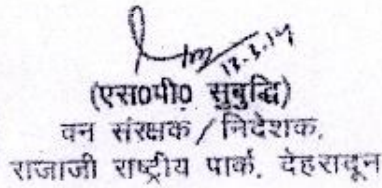 (एस0पी0 सुबुद्धि)
वन संरक्षक / निदेशक,
राजाजी राष्ट्रीय पार्क, देहरादून